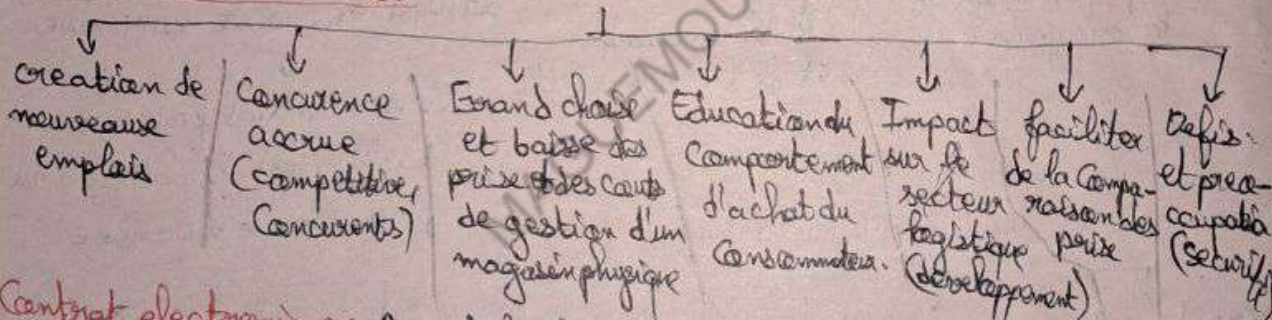 creation de
nouveause
emplois
Concurence
accrue
(competitive,
Concurents)
Grand choise
et baisse des
prise et des couts
de gestion d'un
magasin physique
Education du
Comportement
d'achat du
Consommateur.
Impact
sur le
secteur
logistique
(developpement)
faciliter
de la Compa-
raison des
prise
Defis
et preo-
ccupatio
(securité)
Contrat electroni